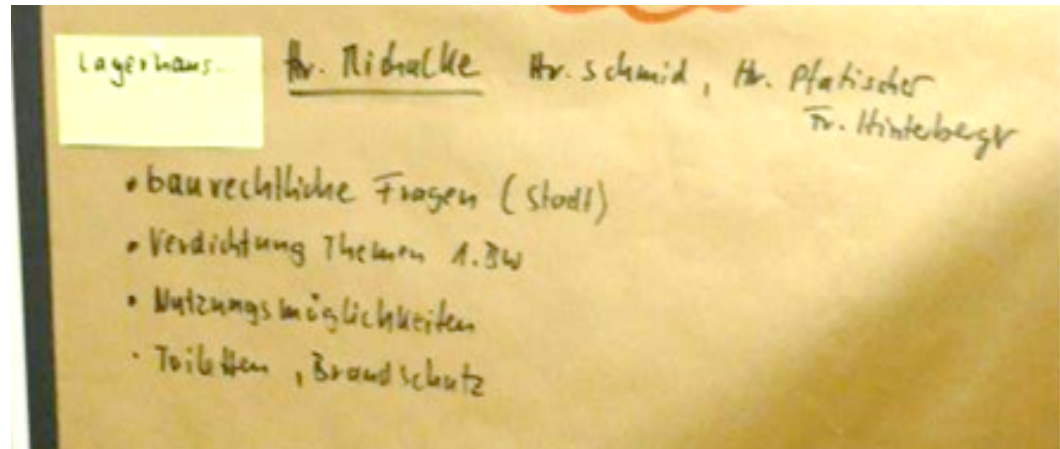 Lagerhaus.. Hr. Michalke Hr. Schmid, Hr. Pfatischer
Fr. Hinterberger
• baurechtliche Fragen (Stadt)
• Verdichtung Themen 1.BW
• Nutzungsmöglichkeiten
• Toiletten, Brandschutz